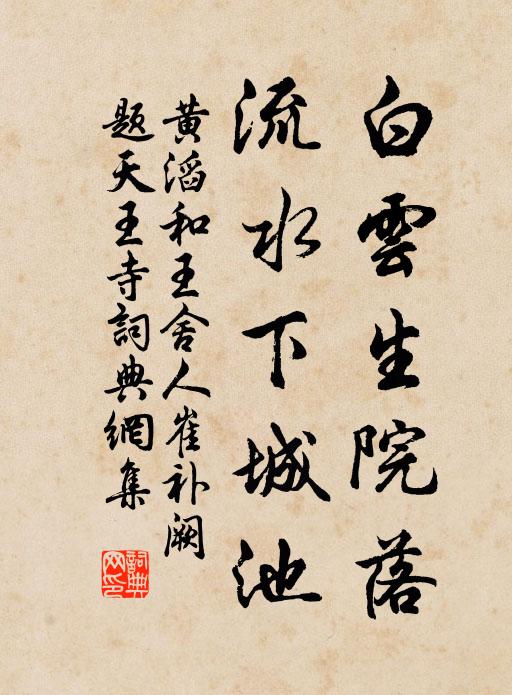 白雲生院落
流水下城池
黄滔和王舍人崔补阙
题天王寺詞典網集
詞典網印